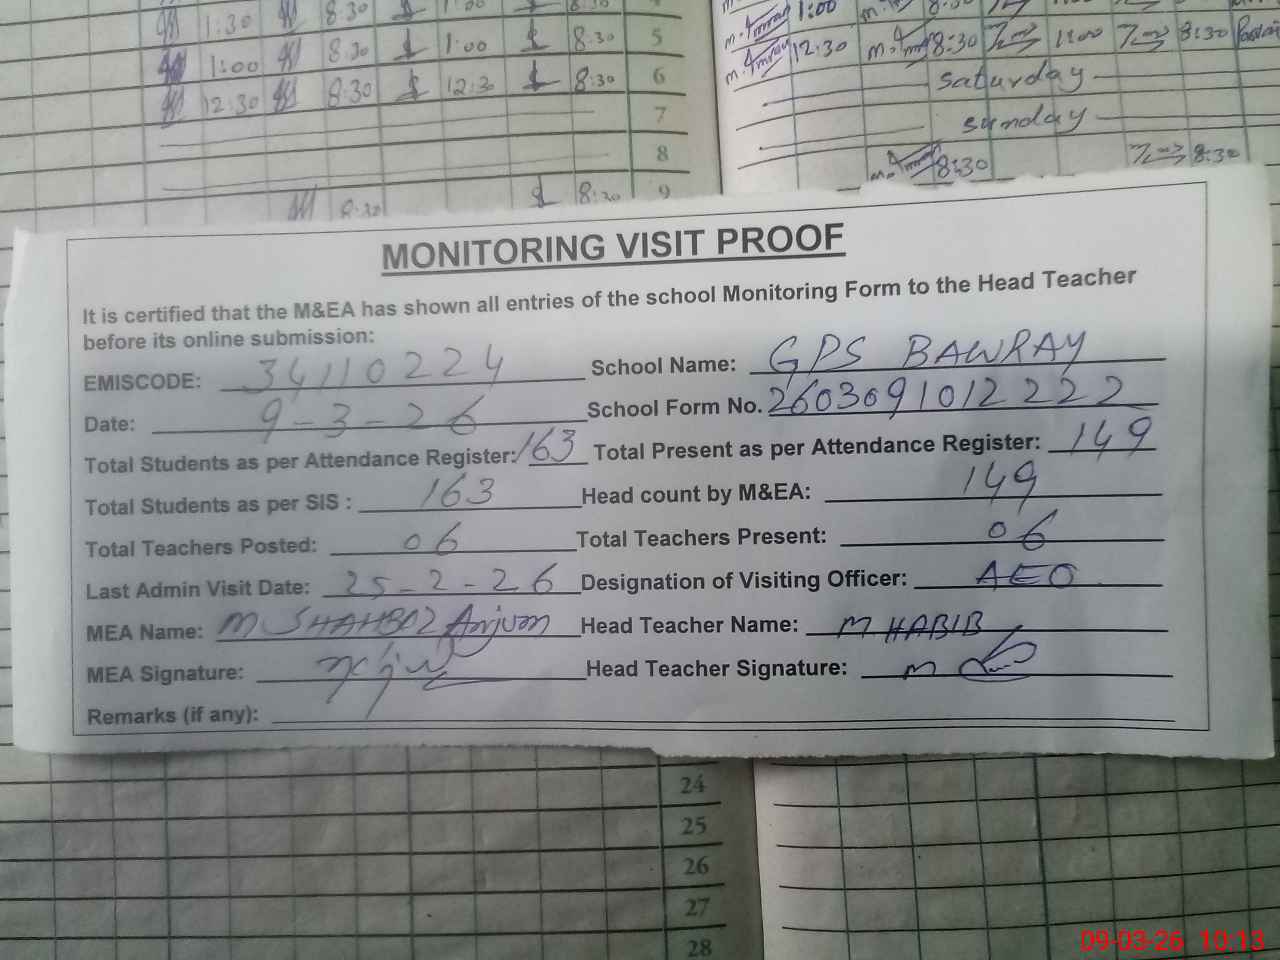 1:30 8:30 1:00 8:30
1:00 8:30 1:00 8:30 5
12:30 8:30 12:30 8:30 6
7
8
8:30 8:30 9
1:00 8:30
12:30 8:30 11:00 8:30
saturday
sunday
8:30 8:30
MONITORING VISIT PROOF
It is certified that the M&EA has shown all entries of the school Monitoring Form to the Head Teacher
before its online submission:
EMISCODE: 34110224 School Name: GPS BAWRAY
Date: 9-3-26 School Form No. 2603091012222
Total Students as per Attendance Register: 163 Total Present as per Attendance Register: 149
Total Students as per SIS : 163 Head count by M&EA: 149
Total Teachers Posted: 06 Total Teachers Present: 06
Last Admin Visit Date: 25-2-26 Designation of Visiting Officer: AEO
MEA Name: M SHAHBAZ Anjum Head Teacher Name: M HABIB
MEA Signature: Head Teacher Signature:
Remarks (if any):
24
25
26
27
28
09-03-26 10:13